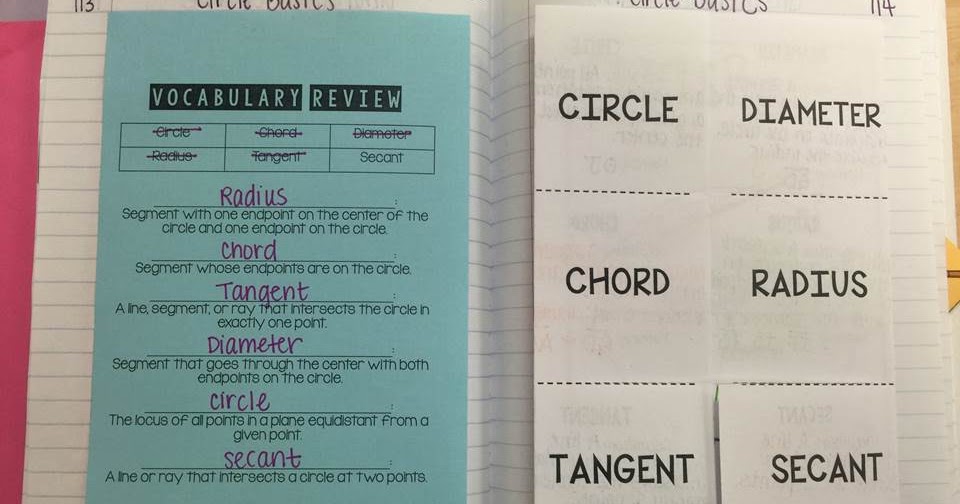 113 Circle Basics
VOCABULARY REVIEW
Circle Chord Diameter
Radius Tangent Secant
Radius :
Segment with one endpoint on the center of the
circle and one endpoint on the circle.
chord :
Segment whose endpoints are on the circle.
Tangent :
A line, segment, or ray that intersects the circle in
exactly one point.
Diameter :
Segment that goes through the center with both
endpoints on the circle.
circle :
The locus of all points in a plane equidistant from a
given point.
secant :
A line or ray that intersects a circle at two points.
Circle Basics 114
CIRCLE DIAMETER
CHORD RADIUS
TANGENT SECANT